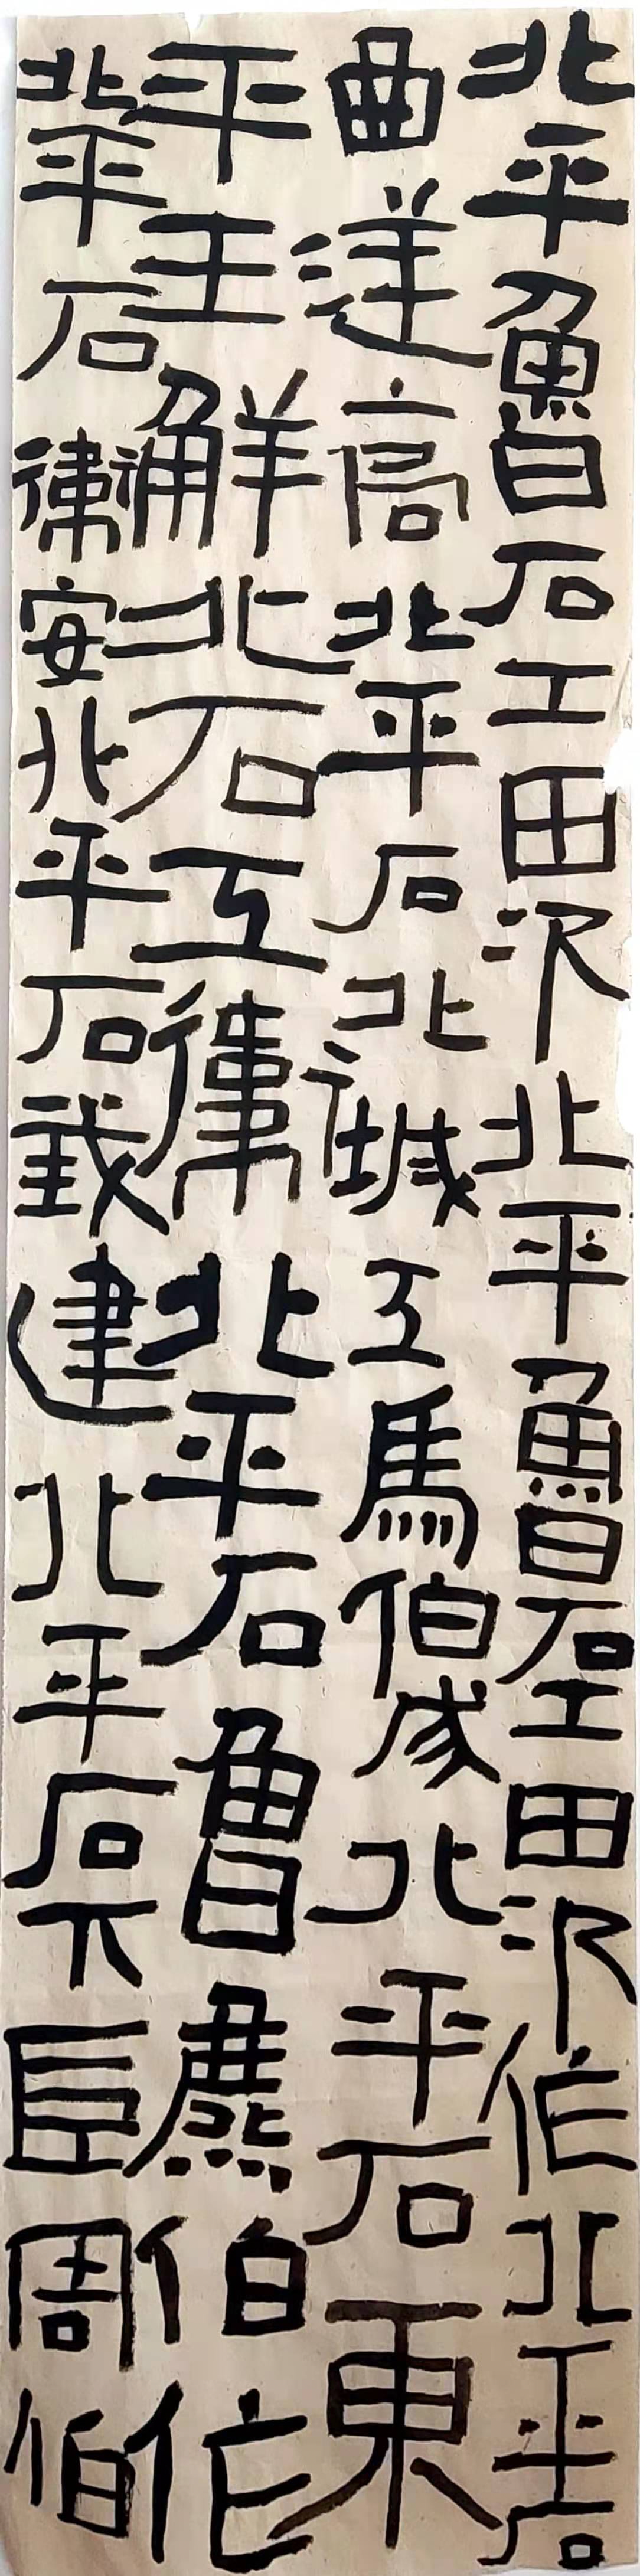 北平魯石工田次北平魯石工田次作北平石
曲逆高北平石北城工馬伯成北平石東
平王解北石工衛北平石魯麃伯作
北平石衛安北平石建北平石下臣周伯